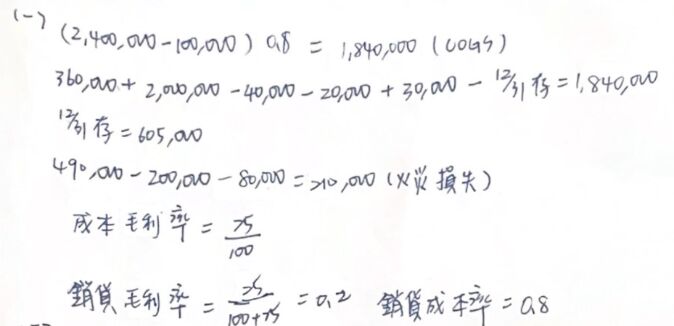 (一)
(2,400,000-100,000) 0.8 = 1,840,000 (COGS)
360,000 + 2,000,000 - 40,000 - 20,000 + 30,000 - 12/31存 = 1,840,000
12/31存 = 605,000
490,000 - 200,000 - 80,000 = 210,000 (火災損失)
成本毛利率 = 25/100
銷貨毛利率 = 25/100+25 = 0.2 銷貨成本率 = 0.8